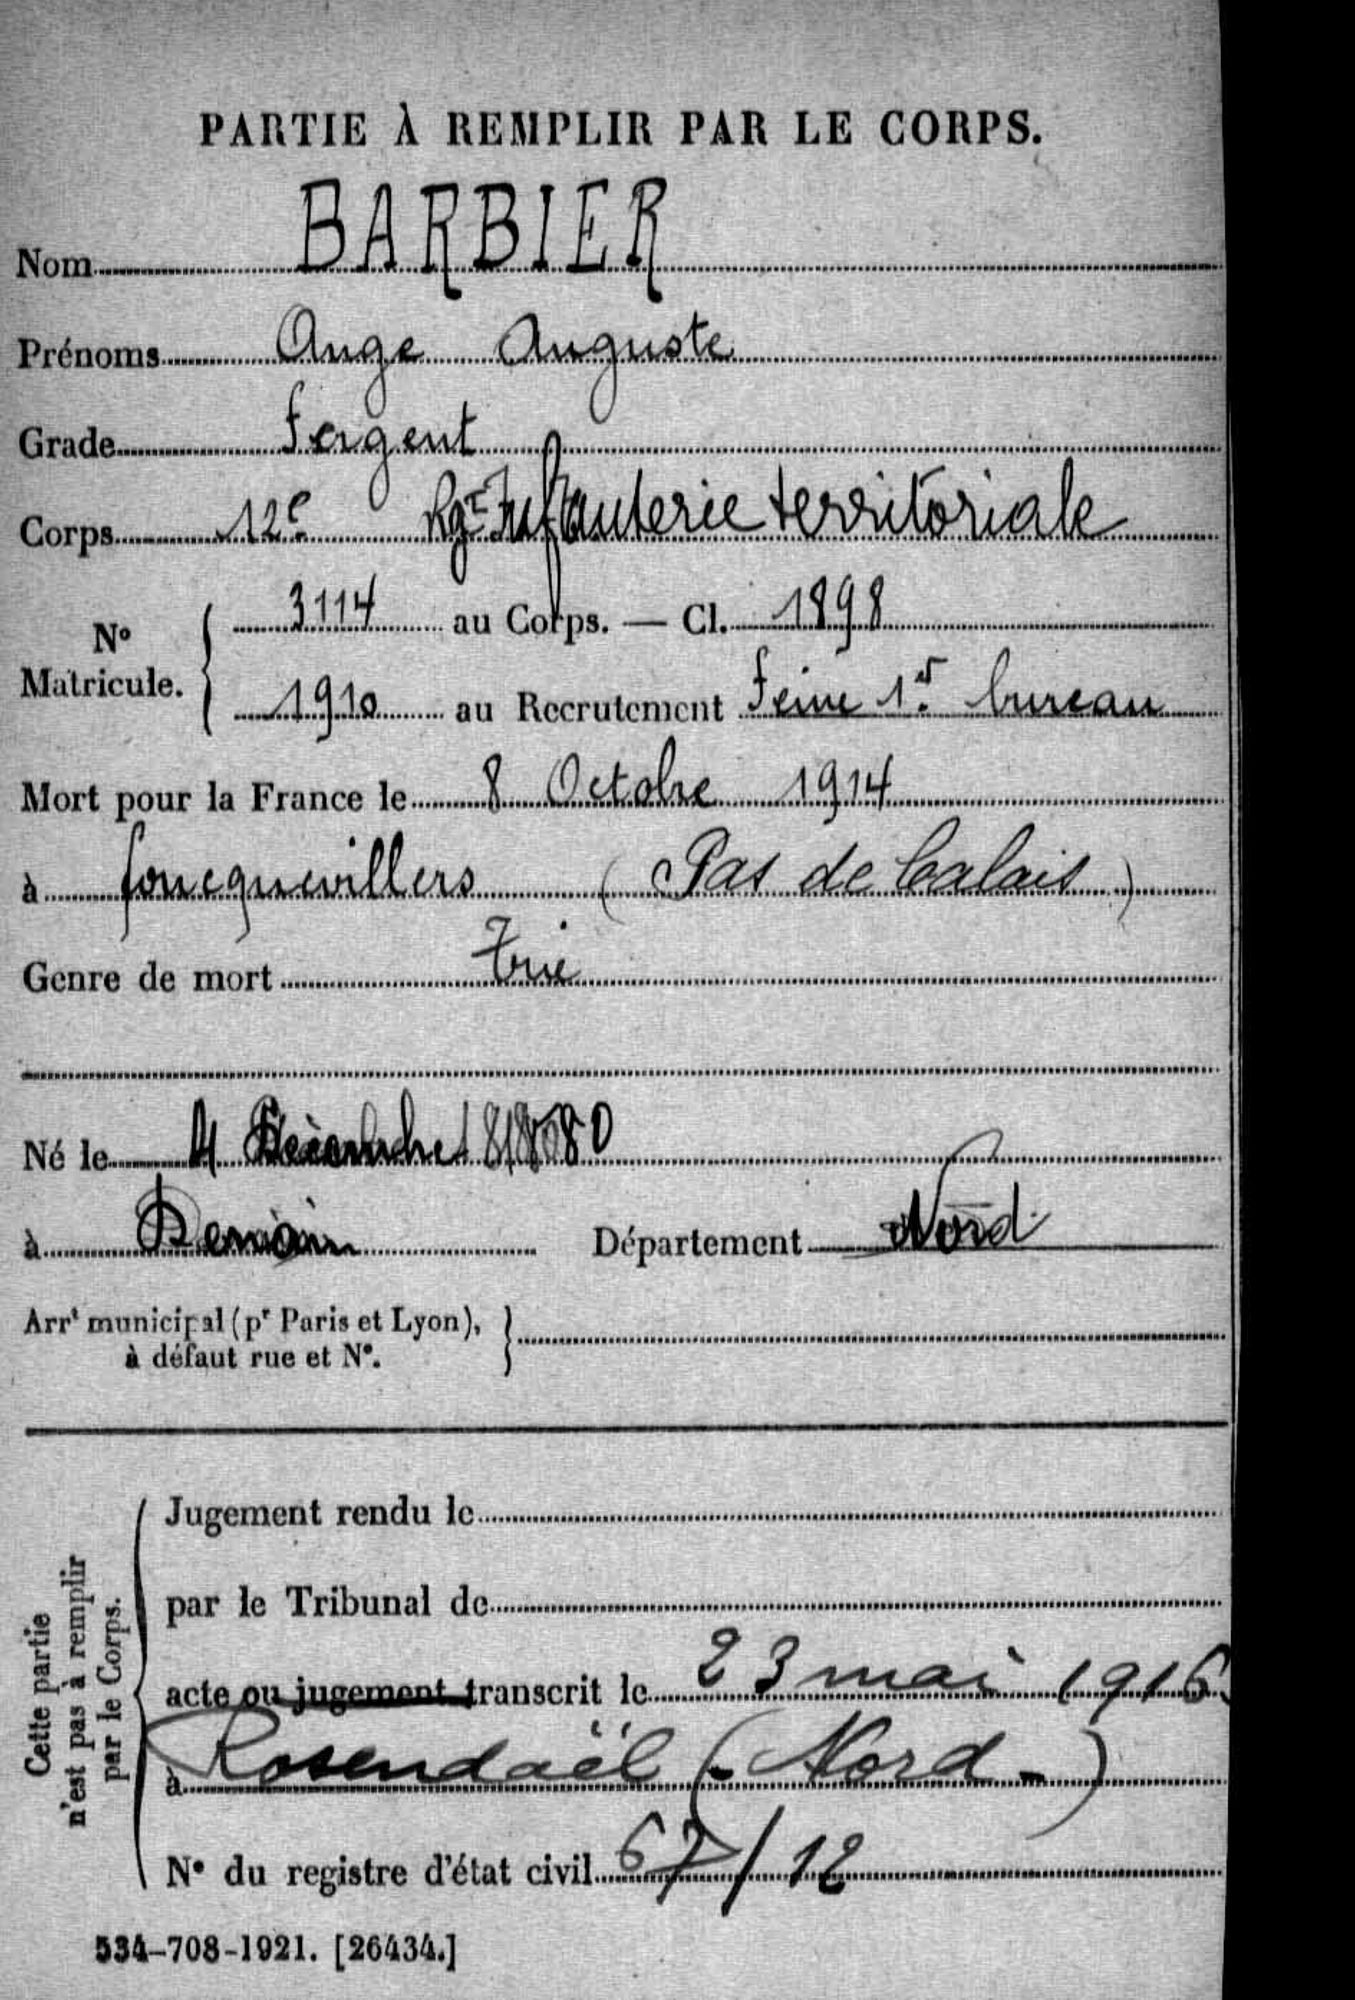 PARTIE À REMPLIR PAR LE CORPS.
Nom BARBIER
Prénoms Ange Auguste
Grade Sergent
Corps 12e Rgt Infanterie territoriale
No Matricule. { 3114 au Corps. — Cl. 1898
1910 au Recrutement Seine 1er bureau
Mort pour la France le 8 Octobre 1914
à foncquevillers (Pas de Calais)
Genre de mort Tué
Né le 4 Décembre 1880
à Denain Département Nord
Arrt municipal (pr Paris et Lyon), }
à défaut rue et No.
Cette partie n'est pas à remplir par le Corps.
Jugement rendu le
par le Tribunal de
acte ou jugement transcrit le 23 mai 1916
à Rosendaël (-Nord-)
No du registre d'état civil 67/12
534-708-1921. [26434.]